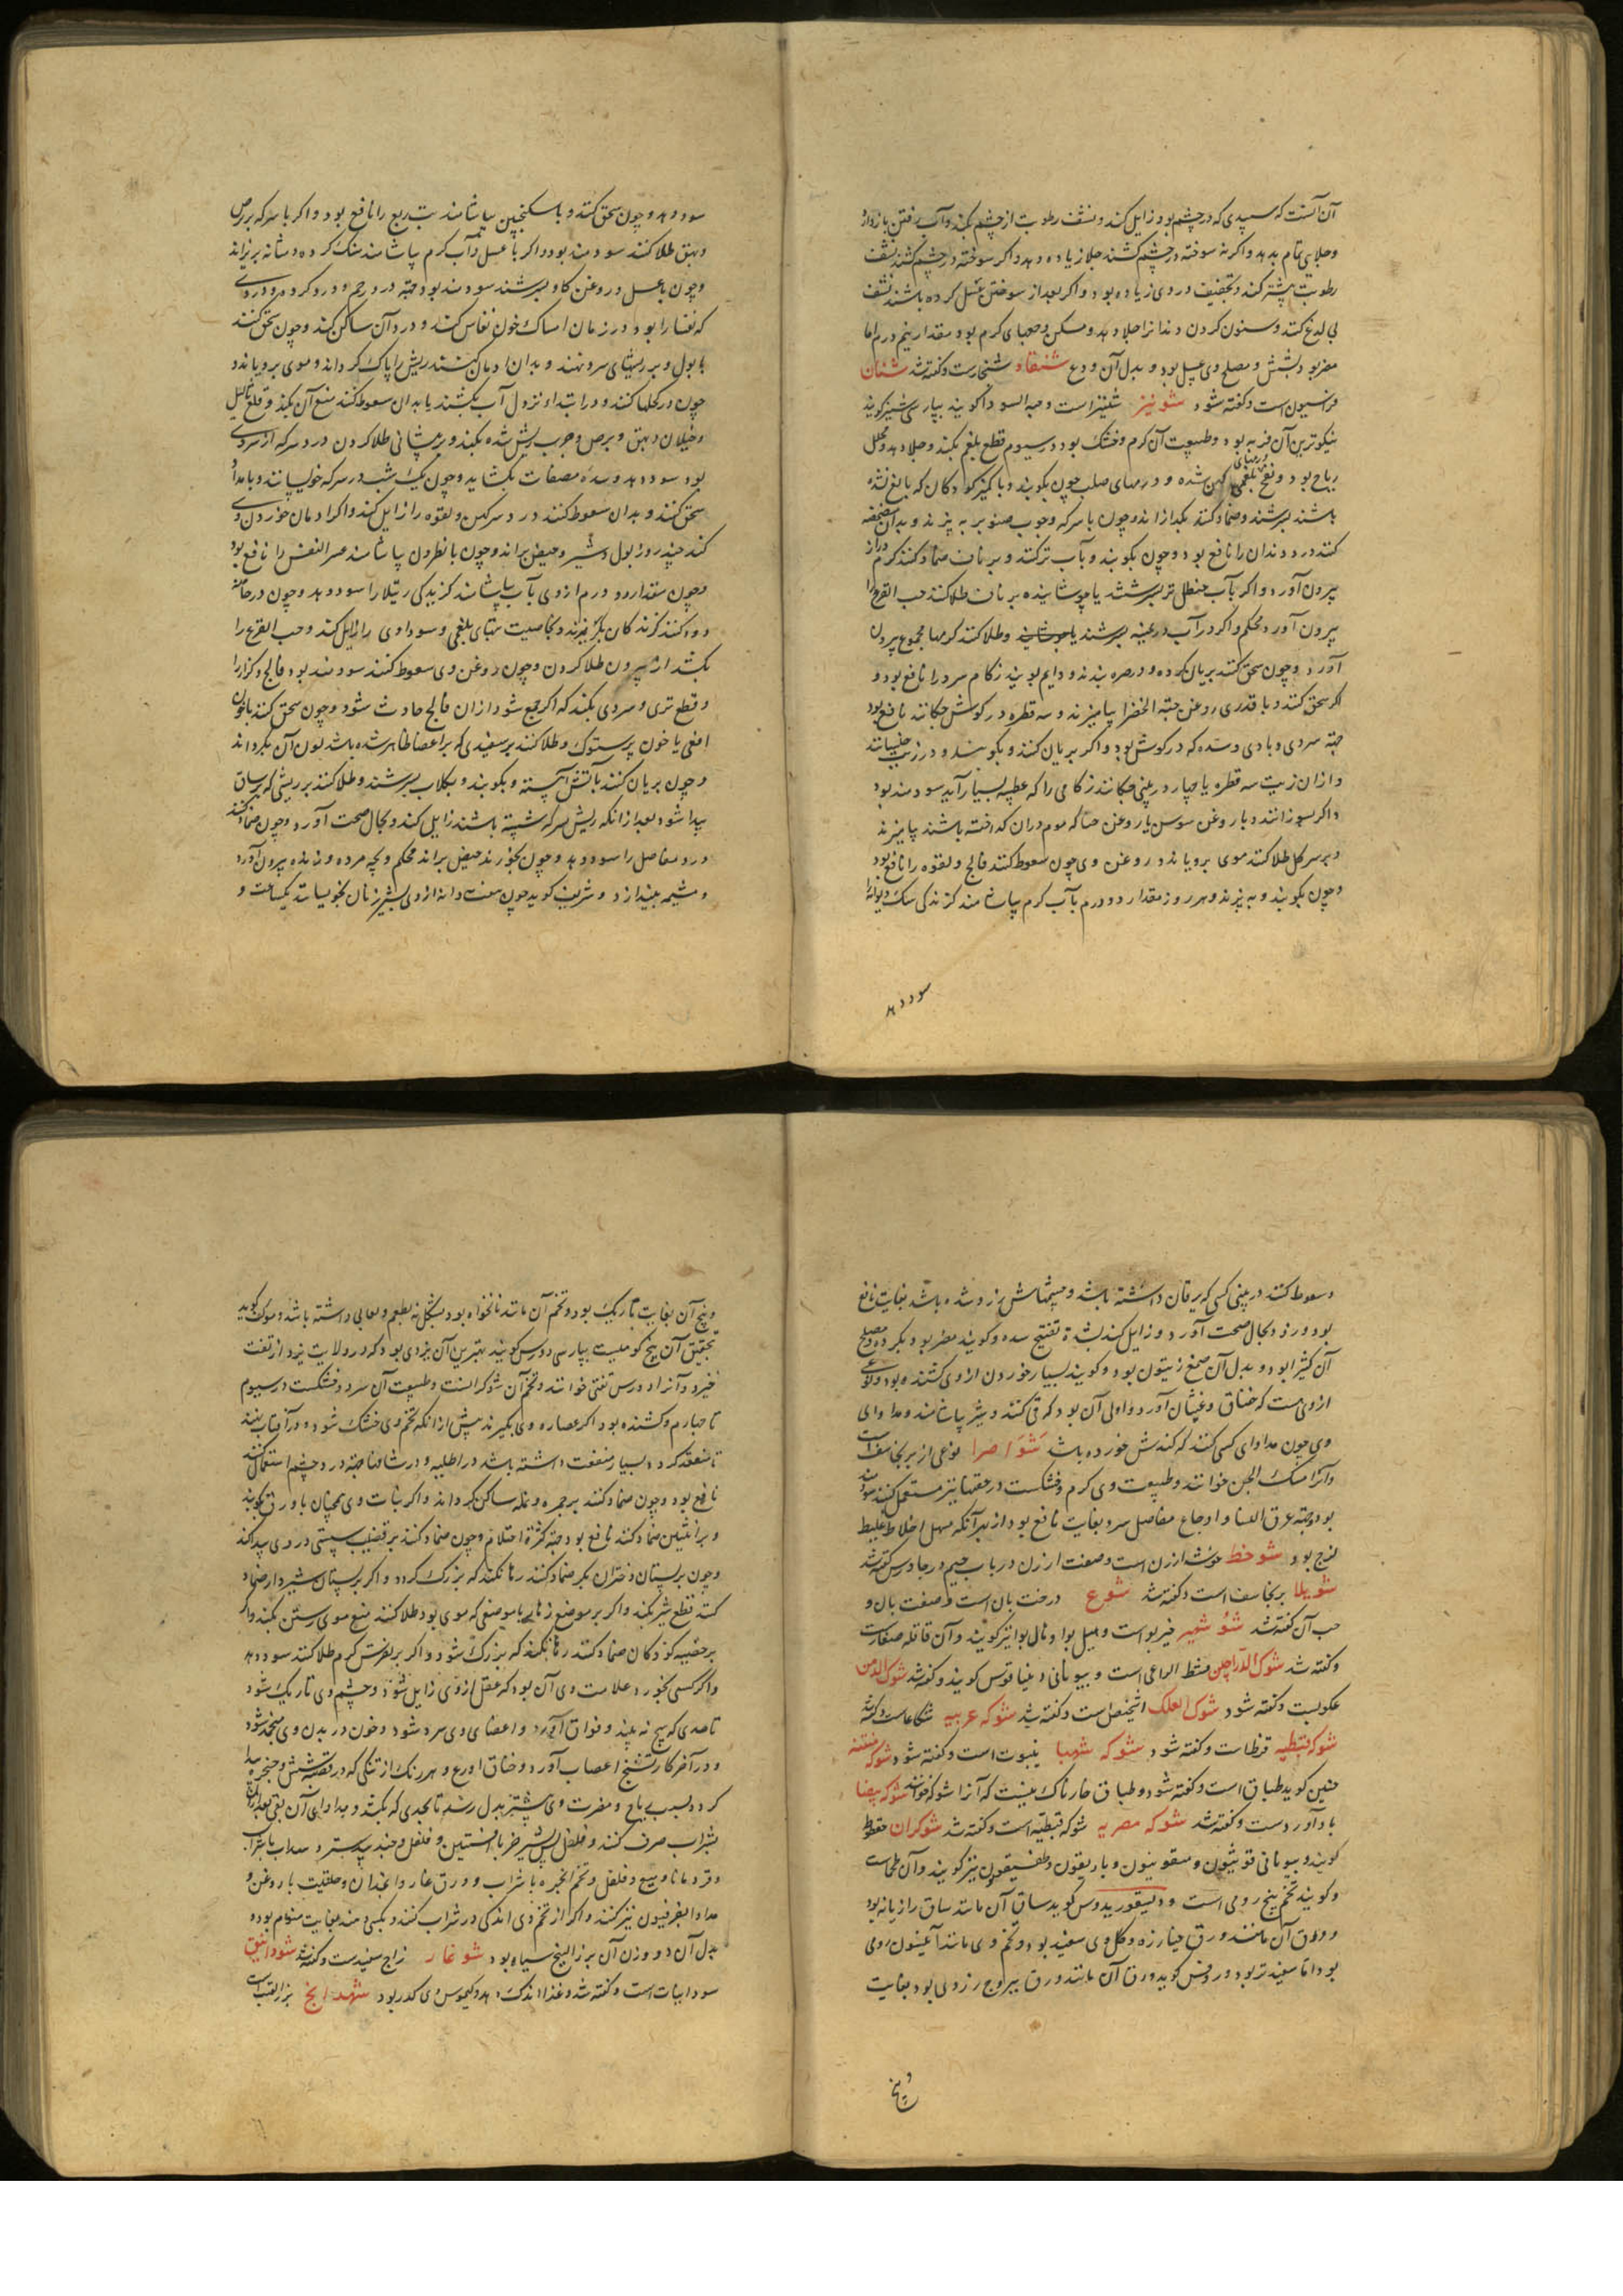 آن آنست که سپیدی که در چشم بود زایل کند و نشف رطوبت از چشم بکند و آب رفتن باز دارد
و جلای تمام بدهد و اگر نه سوخته در چشم کشند جلا زیاده دهد و اگر سوخته در چشم کشند نشف
رطوبت بیشتر کند و تجفیف در وی زیاده بود و اگر بعد از سوختن غسل کرده باشند نشف
بی لدغ کند و سنون کردن دندانرا جلا دهد و مسکن وجعهای کرم بود و مقدار نیم درم اما
مضر بود بشش و مصلح وی عسل بود و بدل آن ودع شنقار شنجارست و گفته شد شنان
فراسیون است و گفته شود شونیز شینیز است و حبة السودا گویند بپارسی شینیز گویند
نیکوترین آن فربه بود و طبیعت آن کرم و خشک بود در سیوم قطع بلغم بکند و جلا دهد و محلل
ریاح بود و نفخ و تبهای بلغمی کهن شده و ورمهای صلب چون بکوبند و با کمیز کودکان که بالغ نشده
باشند بسرشند و ضماد کنند بگدازاند و چون با سرکه و چوب صنوبر به پزند و بدان مضمضه
کنند درد دندان را نافع بود و چون بکوبند و بآب تر کنند و بر ناف ضماد کنند کرم دراز
بیرون آورد و اگر بآب حنظل تر بسرشند یا جوشانیده بر ناف طلا کنند حب القرع را
بیرون آورد محکم و اگر در آب درمنه بسرشند یا جوشانند و طلا کنند کرمها مجموع بیرون
آورد و چون سحق کنند بریان کرده و در صره بندند و دایم بویند زکام سرد را نافع بود و
اگر سحق کنند و با قدری روغن حبة الخضرا بیامیزند و سه قطره در گوش چکانند نافع بود
جهة سردی و بادی و سده که در گوش بود و اگر بریان کنند و بکوبند و در زیت خیسانند
و از آن زیت سه قطره یا چهار در بینی چکانند زکامی را که عطسه بسیار آید سودمند بود
و اگر بسوزانند و با روغن سوسن یا روغن حنا که موم در آن گداخته باشند بیامیزند
و بر سر کل طلا کنند موی برویاند و روغن وی چون سعوط کنند فالج و لقوه را نافع بود
و چون بکوبند و به پزند و هر روز مقدار دو درم بآب کرم بیاشامند گزندگی سگ دیوانه را
سود دهد
سود دهد و چون سحق کنند و با سکنجبین بیاشامند تب ربع را نافع بود و اگر با سرکه بر برص
و بهق طلا کنند سودمند بود و اگر با عسل و آب کرم بیاشامند سنگ گرده و مثانه بریزاند
و چون با عسل و روغن گاو بسرشند سودمند بود جهة درد رحم و درد گرده و دردی
که نفسا را بود در زمان امساک خون نفاس کند و درد آن ساکن کند و چون سحق کنند
با بول و بر ریشهای سر نهند و بدان ادمان کنند ریش را پاک گرداند و موی برویاند و
چون در کحلها کنند و در ابتداء نزول آب بکشند یا بدان سعوط کنند منع آن بکند و قلع ثالیل
و خیلان و بهق و برص و جرب ریش شده بکند و بر پیشانی طلا کردن درد سر که از سردی
بود سود دهد و سده مصفات بگشاید و چون یک شب در سرکه خیسانند و بامداد
سحق کنند و بدان سعوط کنند درد سر کهن و لقوه را زایل کند و اگر ادمان خوردن وی
کند چند روز بول و شیر و حیض براند و چون با نطرون بیاشامند عسر النفس را نافع بود
و چون مقدار دو درم از وی بآب بیاشامند گزیدگی رتیلا را سود دهد و چون در خانه
دود کنند گزندگان بگریزند و بخاصیت تبهای بلغمی و سوداوی را زایل کند و حب القرع را
بکشد از بیرون طلا کردن و چون روغن وی سعوط کنند سودمند بود فالج و کزاز را
و قطع تری و سردی بکند که اگر جمع شود از آن فالج حادث شود و چون سحق کنند با خون
افعی یا خون پرستوک و طلا کنند بر سفیدی که بر اعضا ظاهر شده باشد لون آن بگرداند
و چون بریان کنند بآتش آهسته و بکوبند و بگلاب بسرشند و طلا کنند بر ریشی که بر ساق
پیدا شود بعد از آنکه ریش بسرکه شسته باشند زایل کند و بحال صحت آورد و چون ضماد کنند
درد مفاصل را سود دهد و چون بخورند حیض براند محکم و بچه مرده و زنده بیرون آورد
و مشیمه بیندازد و شریف گوید چون هفت دانه از وی بشیر زنان بخیسانند یکساعت و
و سعوط کنند در بینی کسی که یرقان داشته باشد و چشمهاش زرد شده باشد بغایت نافع
بود و رنگ بحال صحت آورد و زایل کند بشدة تفتیح سده و گویند مضر بود بگرده و مصلح
آن کثیرا بود و بدل آن صمغ زیتون بود و گویند بسیار خوردن از وی کشنده بود و نوعی
از وی هست که خناق و غثیان آورد و اولی آن بود که قی کنند و شیر بیاشامند و مداوای
وی چون مداوای کسی کنند که کندش خورده باشد شواصرا نوعی از برنجاسف است
و آنرا مسک الجن خوانند و طبیعت وی کرم و خشکست در حقنها نیز مستعمل کنند سودمند
بود جهة عرق النسا و اوجاع مفاصل سرد بغایت نافع بود از بهر آنکه مسهل اخلاط غلیظ
لزج بود شوخط خوشه ارزن است و صفت ارزن در باب جیم در جاورس گفته شد
شویلا برنجاسف است و گفته شد شوع درخت بان است و صفت بان و
حب آن گفته شد شو شمیر خیربو است و هیل بوا و نال بوا نیز گویند و آن قاقله صغارست
و گفته شد شوک الدراجین مشط الراعی است و بیونانی دینیاقوس گویند و گفته شد شوک الدمن
عکوبست و گفته شود شوک العلک اشخیص است و گفته شد شوکه عربیه شکاعاست و گفته شد
شوکه قبطیه قرظاست و گفته شود شوکه شهبا ینبوت است و گفته شود شوکه منتنه
حنین گوید طباق است و گفته شود و طباق خارناک نیست که آنرا شوکه خوانند شوکه بیضا
بادآوردست و گفته شد شوکه مصریه شوکه قبطیه است و گفته شد شوکران
گویند و بیونانی قونیون و و نیز گویند و آن
و گویند تخم بنج رومی است و دیسقوریدوس گوید ساق آن مانند ساق رازیانه بود
و ورق آن مانند ورق خیارزه و گل وی سفید بود و تخم وی مانند انیسون رومی
بود اما سفیدتر بود و روفس گوید ورق آن مانند ورق یبروج زردی بود بغایت
و بیخ
و بیخ آن بغایت باریک بود و تخم آن مانند نانخواه بود بشکل نه بطعم و لعابی داشته باشد و مولف گوید
تحقیق آن بیخ کوهیست بپارسی دورس گویند بهترین آن یزدی بود که در ولایت یزد از تفت
خیزد و آنرا دورس تفتی خوانند و تخم آن شوکرانست و طبیعت آن سرد و خشکست در سیوم
تا چهارم و کشنده بود اگر عصاره وی بگیرند پیش از آنکه تخم وی خشک شود و در آفتاب نهند
تا منعقد گردد بسیار منفعت داشته باشد در اطلیه و در شافها جهة درد چشم استعمال کنند
نافع بود و چون ضماد کنند بر جمره و نمله ساکن گرداند و اگر نبات وی همچنان با ورق بکوبند
و بر انثیین ضماد کنند نافع بود جهة کثرة احتلام و چون ضماد کنند بر قضیب سستی در وی پیدا کند
و چون بر پستان دختران بکر ضماد کنند رها نکند که بزرگ گردد و اگر بر پستان شیردار ضماد
کنند قطع شیر بکند و اگر بر موضع زهار یا موضعی که موی بود طلا کنند منع موی رستن بکند و اگر
بر خصیه کودکان ضماد کنند رها نکند که بزرگ شود و اگر بر نقرس کرم طلا کنند سود دهد
و اگر کسی بخورد علامت وی آن بود که عقل از وی زایل شود و چشم وی تاریک شود
تا حدی که هیچ نه بیند و فواق آورد و اعضای وی سرد شود و خون در بدن وی منجمد شود
و در آخر کار تشنج اعصاب آورد و خناق آورد و هر رنگ از تنگی که در قصبه شش و حنجره پیدا
گردد بسبب ریاح و مضرت وی بیشتر بدل رسد تا بحدی که بکشد و مداوای آن بقی بعد از آن
بشراب صرف کنند و فلفل پس شیر خر با افسنتین و فلفل و جندبیدستر و سداب با شراب
و قردمانا و میعه و فلفل و تخم انجره با شراب و ورق غار و انجدان و حلتیت با روغن و
مداوا بفرفیون نیز کنند و اگر از تخم وی اندکی در شراب کنند و بکسی دهند بغایت منوم بود و
بدل آن دو وزن آن بزرالبنج سیاه بود شوغار زاج سفیدست و گفته شد شودانیق
سودانیات است و گفته شد و غذا اندک دهد و کیموس وی کدر بود شهدانج بزر القنب است